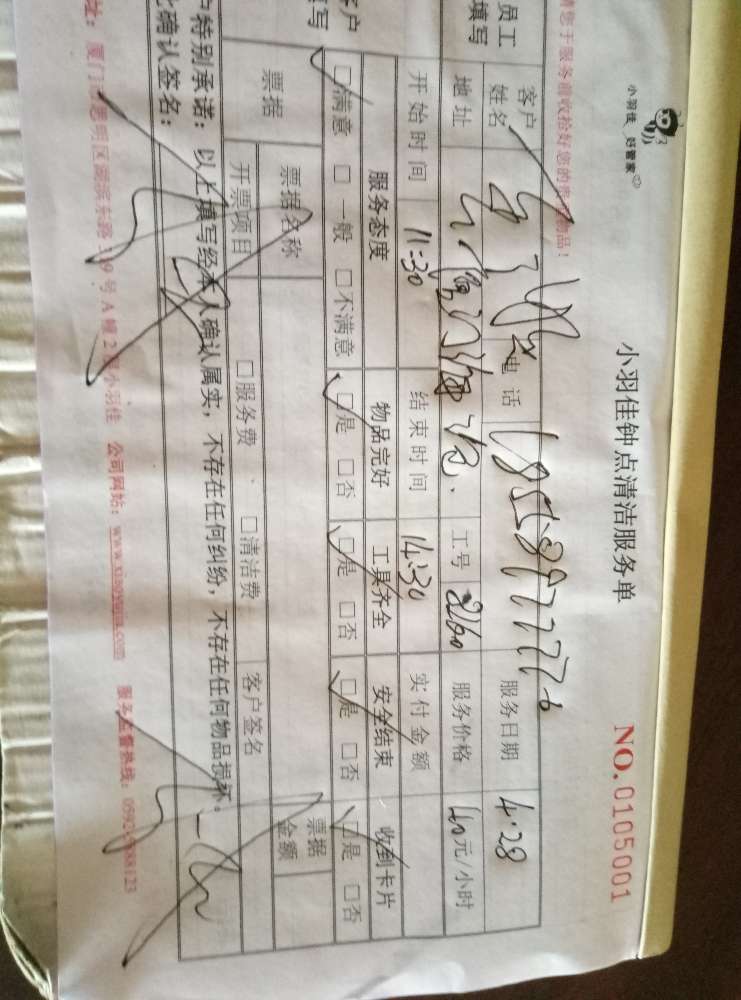 小羽佳 好管家
小羽佳钟点清洁服务单
NO.0105001
请您于服务前收拾好您的贵重物品!
员工
填写
客户
姓名
电话
服务日期 4.28
地址
工号 2160
服务价格 40元/小时
开始时间 11:30 结束时间 14:30 实付金额
客户
填写
服务态度 物品完好 工具齐全 安全结束 收到卡片
□满意 □一般 □不满意 □是 □否 □是 □否 □是 □否 □是 □否
票据
票据名称
票据
金额
开票项目 □服务费、 □清洁费 客户签名
户特别承诺:以上填写经本人确认属实,不存在任何纠纷,不存在任何物品损坏。
此确认签名:
址:厦门市思明区湖滨东路319号A幢2层小羽佳 公司网站:www.xiaoyujia.com 服务监督热线: